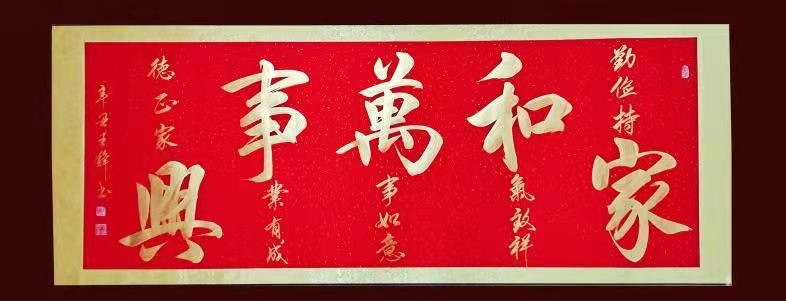 勤俭持家
和氣致祥
萬事如意
事業有成
德正家興
辛丑王鋒书